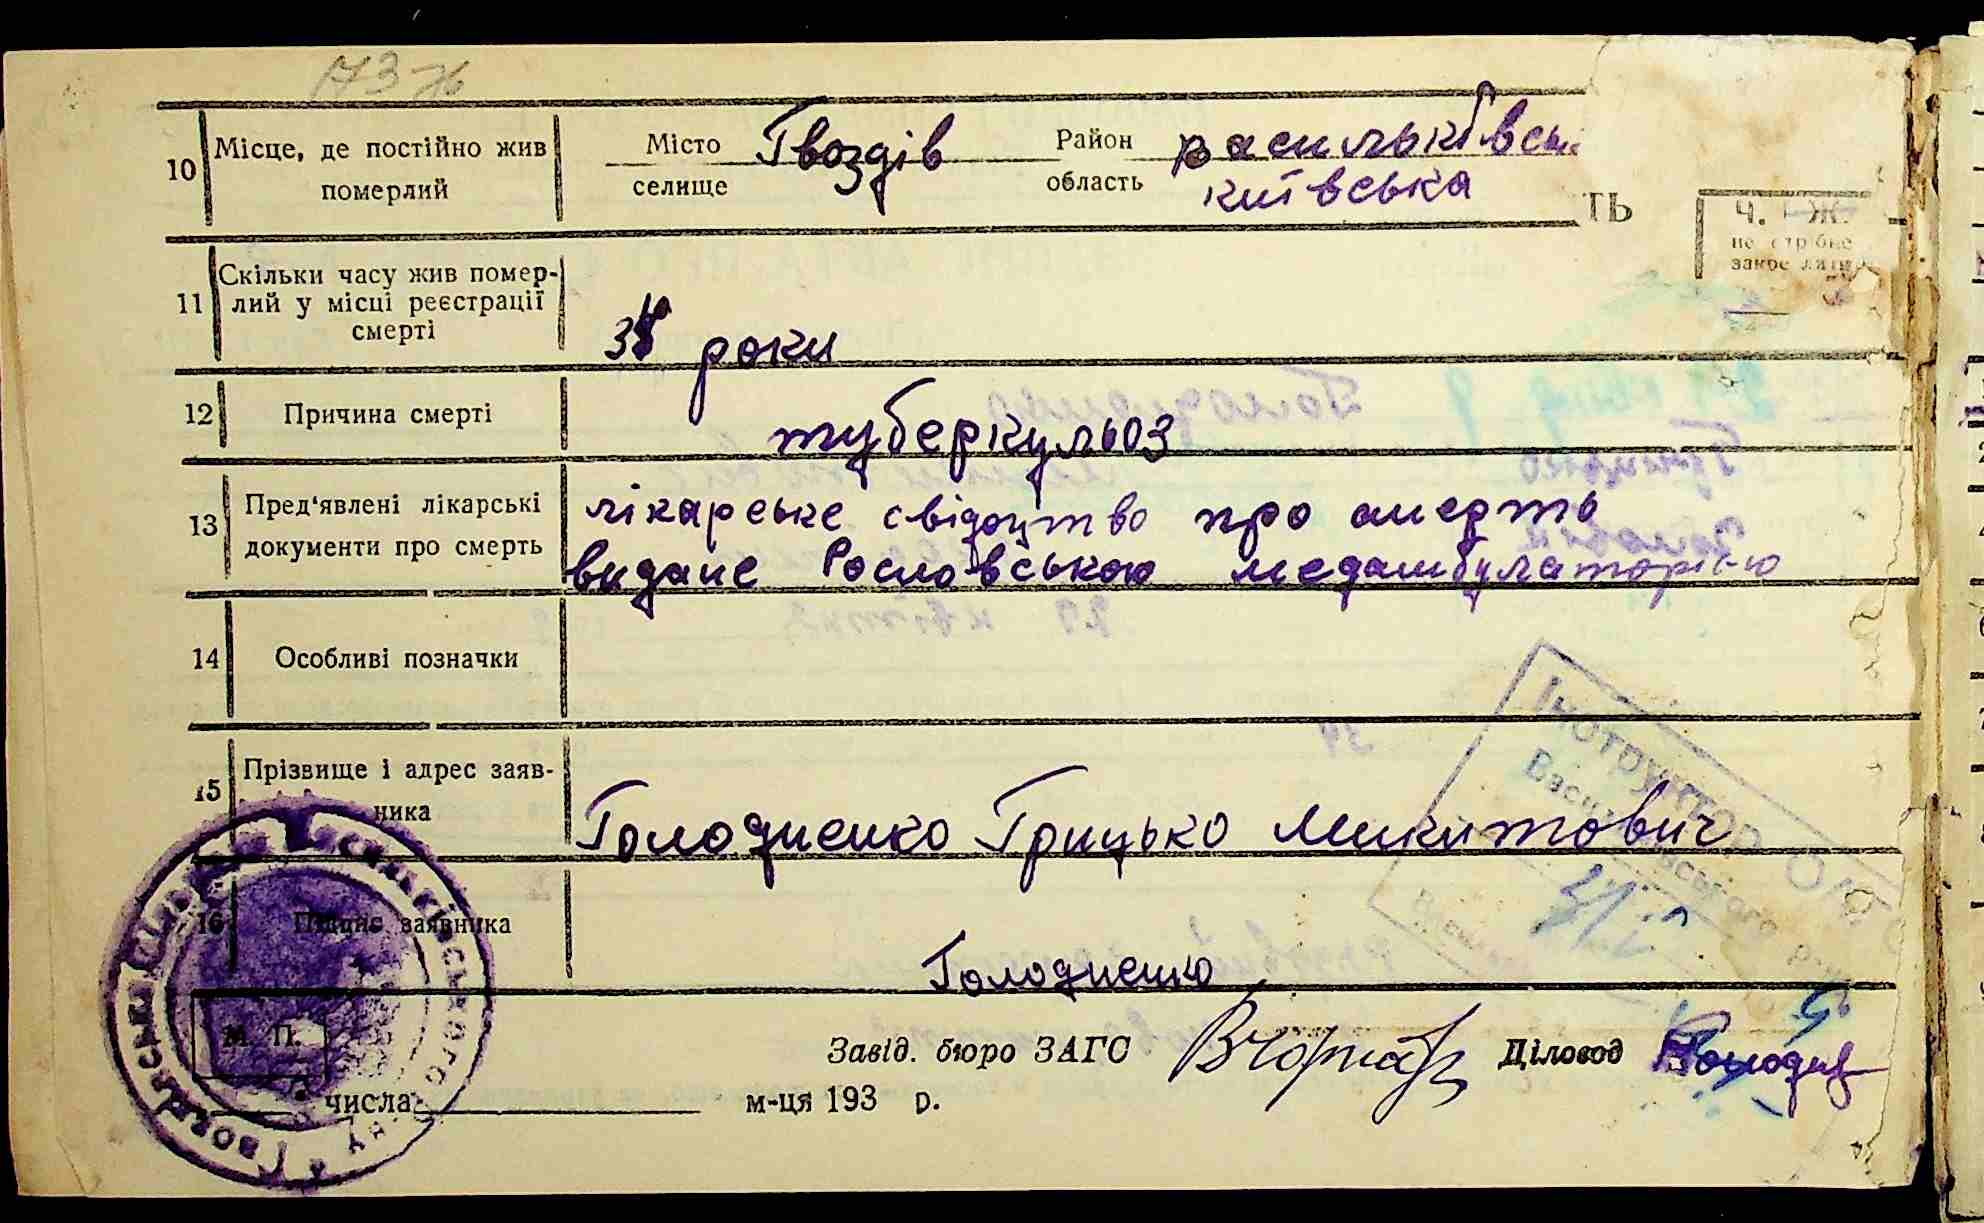 173 ж
10 Місце, де постійно жив померлий
Місто селище Гвоздів
Район васильківськ
область київська
ТЬ
Ч. Ж.
не потрібне
закреслити
11 Скільки часу жив померлий у місці реєстрації смерті
роки
12 Причина смерті
туберкульоз
13 Пред'явлені лікарські документи про смерть
лікарське свідоцтво про смерть
видане Рославською медамбулаторією
14 Особливі позначки
15 Прізвище і адрес заявника
Голодненко Грицько Микитович
Інструктор
16 Підпис заявника
Голодненко
М. П.
Завід. бюро ЗАГС
Діловод
числа м-ця 193 р.